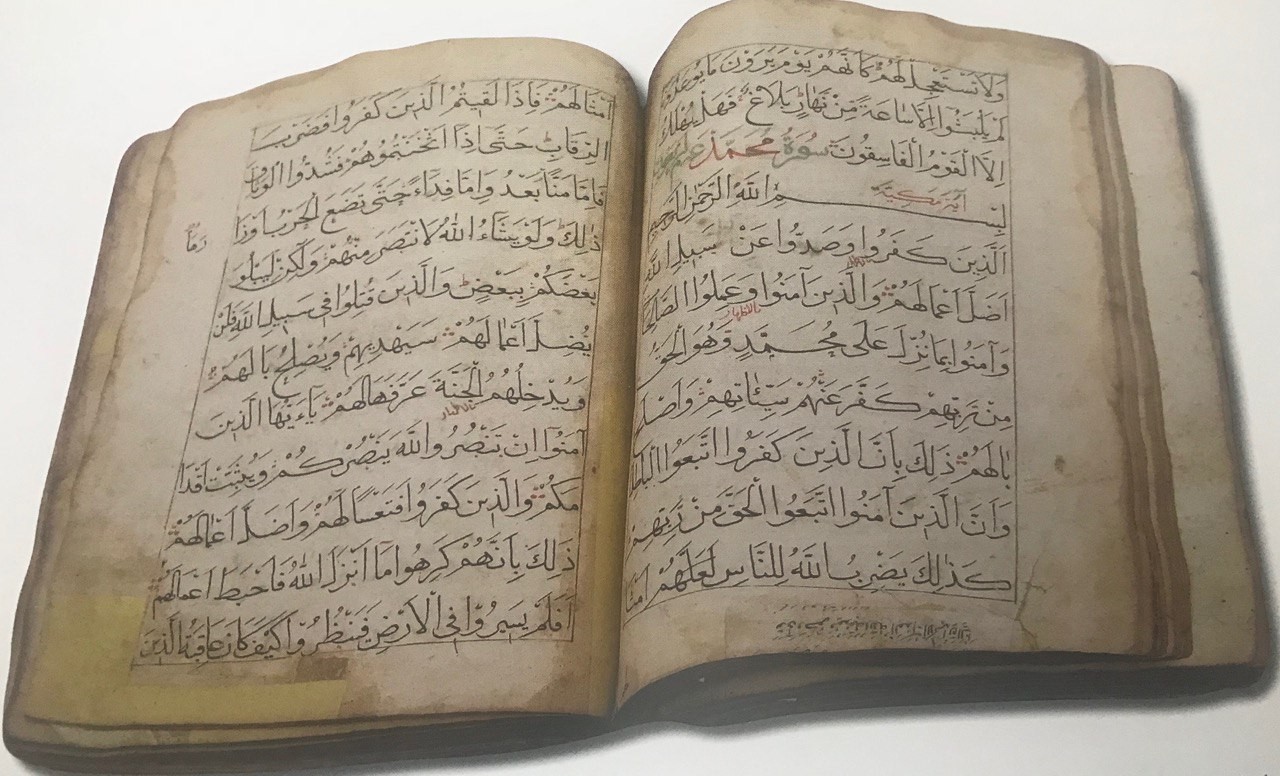 وَلَا تَسْتَعْجِلْ لَهُمْ كَأَنَّهُمْ يَوْمَ يَرَوْنَ مَا يُوعَدُونَ
لَمْ يَلْبَثُوا اِلَّا سَاعَةً مِنْ نَهَارٍ بَلَاغٌ فَهَلْ يُهْلَكُ
اِلَّا الْقَوْمُ الْفَاسِقُونَ سُورَةُ مُحَمَّد
آية مَكِيَّة
بِسْمِ اللهِ الرَّحْمٰنِ الرَّحِيمِ
الَّذِينَ كَفَرُوا وَصَدُّوا عَنْ سَبِيلِ اللهِ
اَضَلَّ اَعْمَالَهُمْ وَالَّذِينَ آمَنُوا وَعَمِلُوا الصَّالِحَاتِ
وَآمَنُوا بِمَا نُزِّلَ عَلَى مُحَمَّدٍ وَهُوَ الْحَقُّ
مِنْ رَبِّهِمْ كَفَّرَ عَنْهُمْ سَيِّئَاتِهِمْ وَاَصْلَحَ
بَالَهُمْ ذَلِكَ بِاَنَّ الَّذِينَ كَفَرُوا اتَّبَعُوا الْبَاطِلَ
وَاَنَّ الَّذِينَ آمَنُوا اتَّبَعُوا الْحَقَّ مِنْ رَبِّهِمْ
كَذَلِكَ يَضْرِبُ اللهُ لِلنَّاسِ لَعَلَّهُمْ اَمْثَا
اَمْثَالَهُمْ فَاِذَا لَقِيتُمُ الَّذِينَ كَفَرُوا فَضَرْبَ
الرِّقَابِ حَتَّى اِذَا اَثْخَنْتُمُوهُمْ فَشُدُّوا الْوَثَاقَ
فَاِمَّا مَنًّا بَعْدُ وَاِمَّا فِدَاءً حَتَّى تَضَعَ الْحَرْبُ اَوْزَا
ذَلِكَ وَلَوْ يَشَاءُ اللهُ لَانْتَصَرَ مِنْهُمْ وَلَكِنْ لِيَبْلُوَ
بَعْضَكُمْ بِبَعْضٍ وَالَّذِينَ قُتِلُوا فِي سَبِيلِ اللهِ فَلَنْ
يُضِلَّ اَعْمَالَهُمْ سَيَهْدِيهِمْ وَيُصْلِحُ بَالَهُمْ
وَيُدْخِلُهُمُ الْجَنَّةَ عَرَّفَهَا لَهُمْ يَاءَيُّهَا الَّذِينَ
آمَنُوا اِنْ تَنْصُرُوا اللهَ يَنْصُرْكُمْ وَيُثَبِّتْ اَقْدَا
مَكُمْ وَالَّذِينَ كَفَرُوا فَتَعْسًا لَهُمْ وَاَضَلَّ اَعْمَالَهُمْ
ذَلِكَ بِاَنَّهُمْ كَرِهُوا مَا اَنْزَلَ اللهُ فَاَحْبَطَ اَعْمَالَهُمْ
اَفَلَمْ يَسِيرُوا فِي الْاَرْضِ فَيَنْظُرُوا كَيْفَ كَانَ عَاقِبَةُ الَّذِينَ